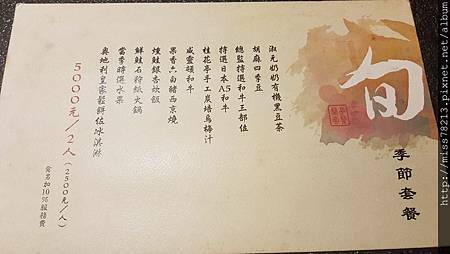 旬
季節套餐
淑元奶奶有機黑豆茶
胡麻四季豆
總監特選和牛三部位
特選日本A5和牛
桂花亭手工炭焙烏梅汁
威靈頓和牛
果香六白豬西京燒
燻鮭銀杏炊飯
鮮鮭石狩紙火鍋
當季時選水果
奧地利皇家鬆餅佐冰淇淋
5000元/2人(2500元/人)
需另加10%服務費
http://miss78213.pixnet.net/album